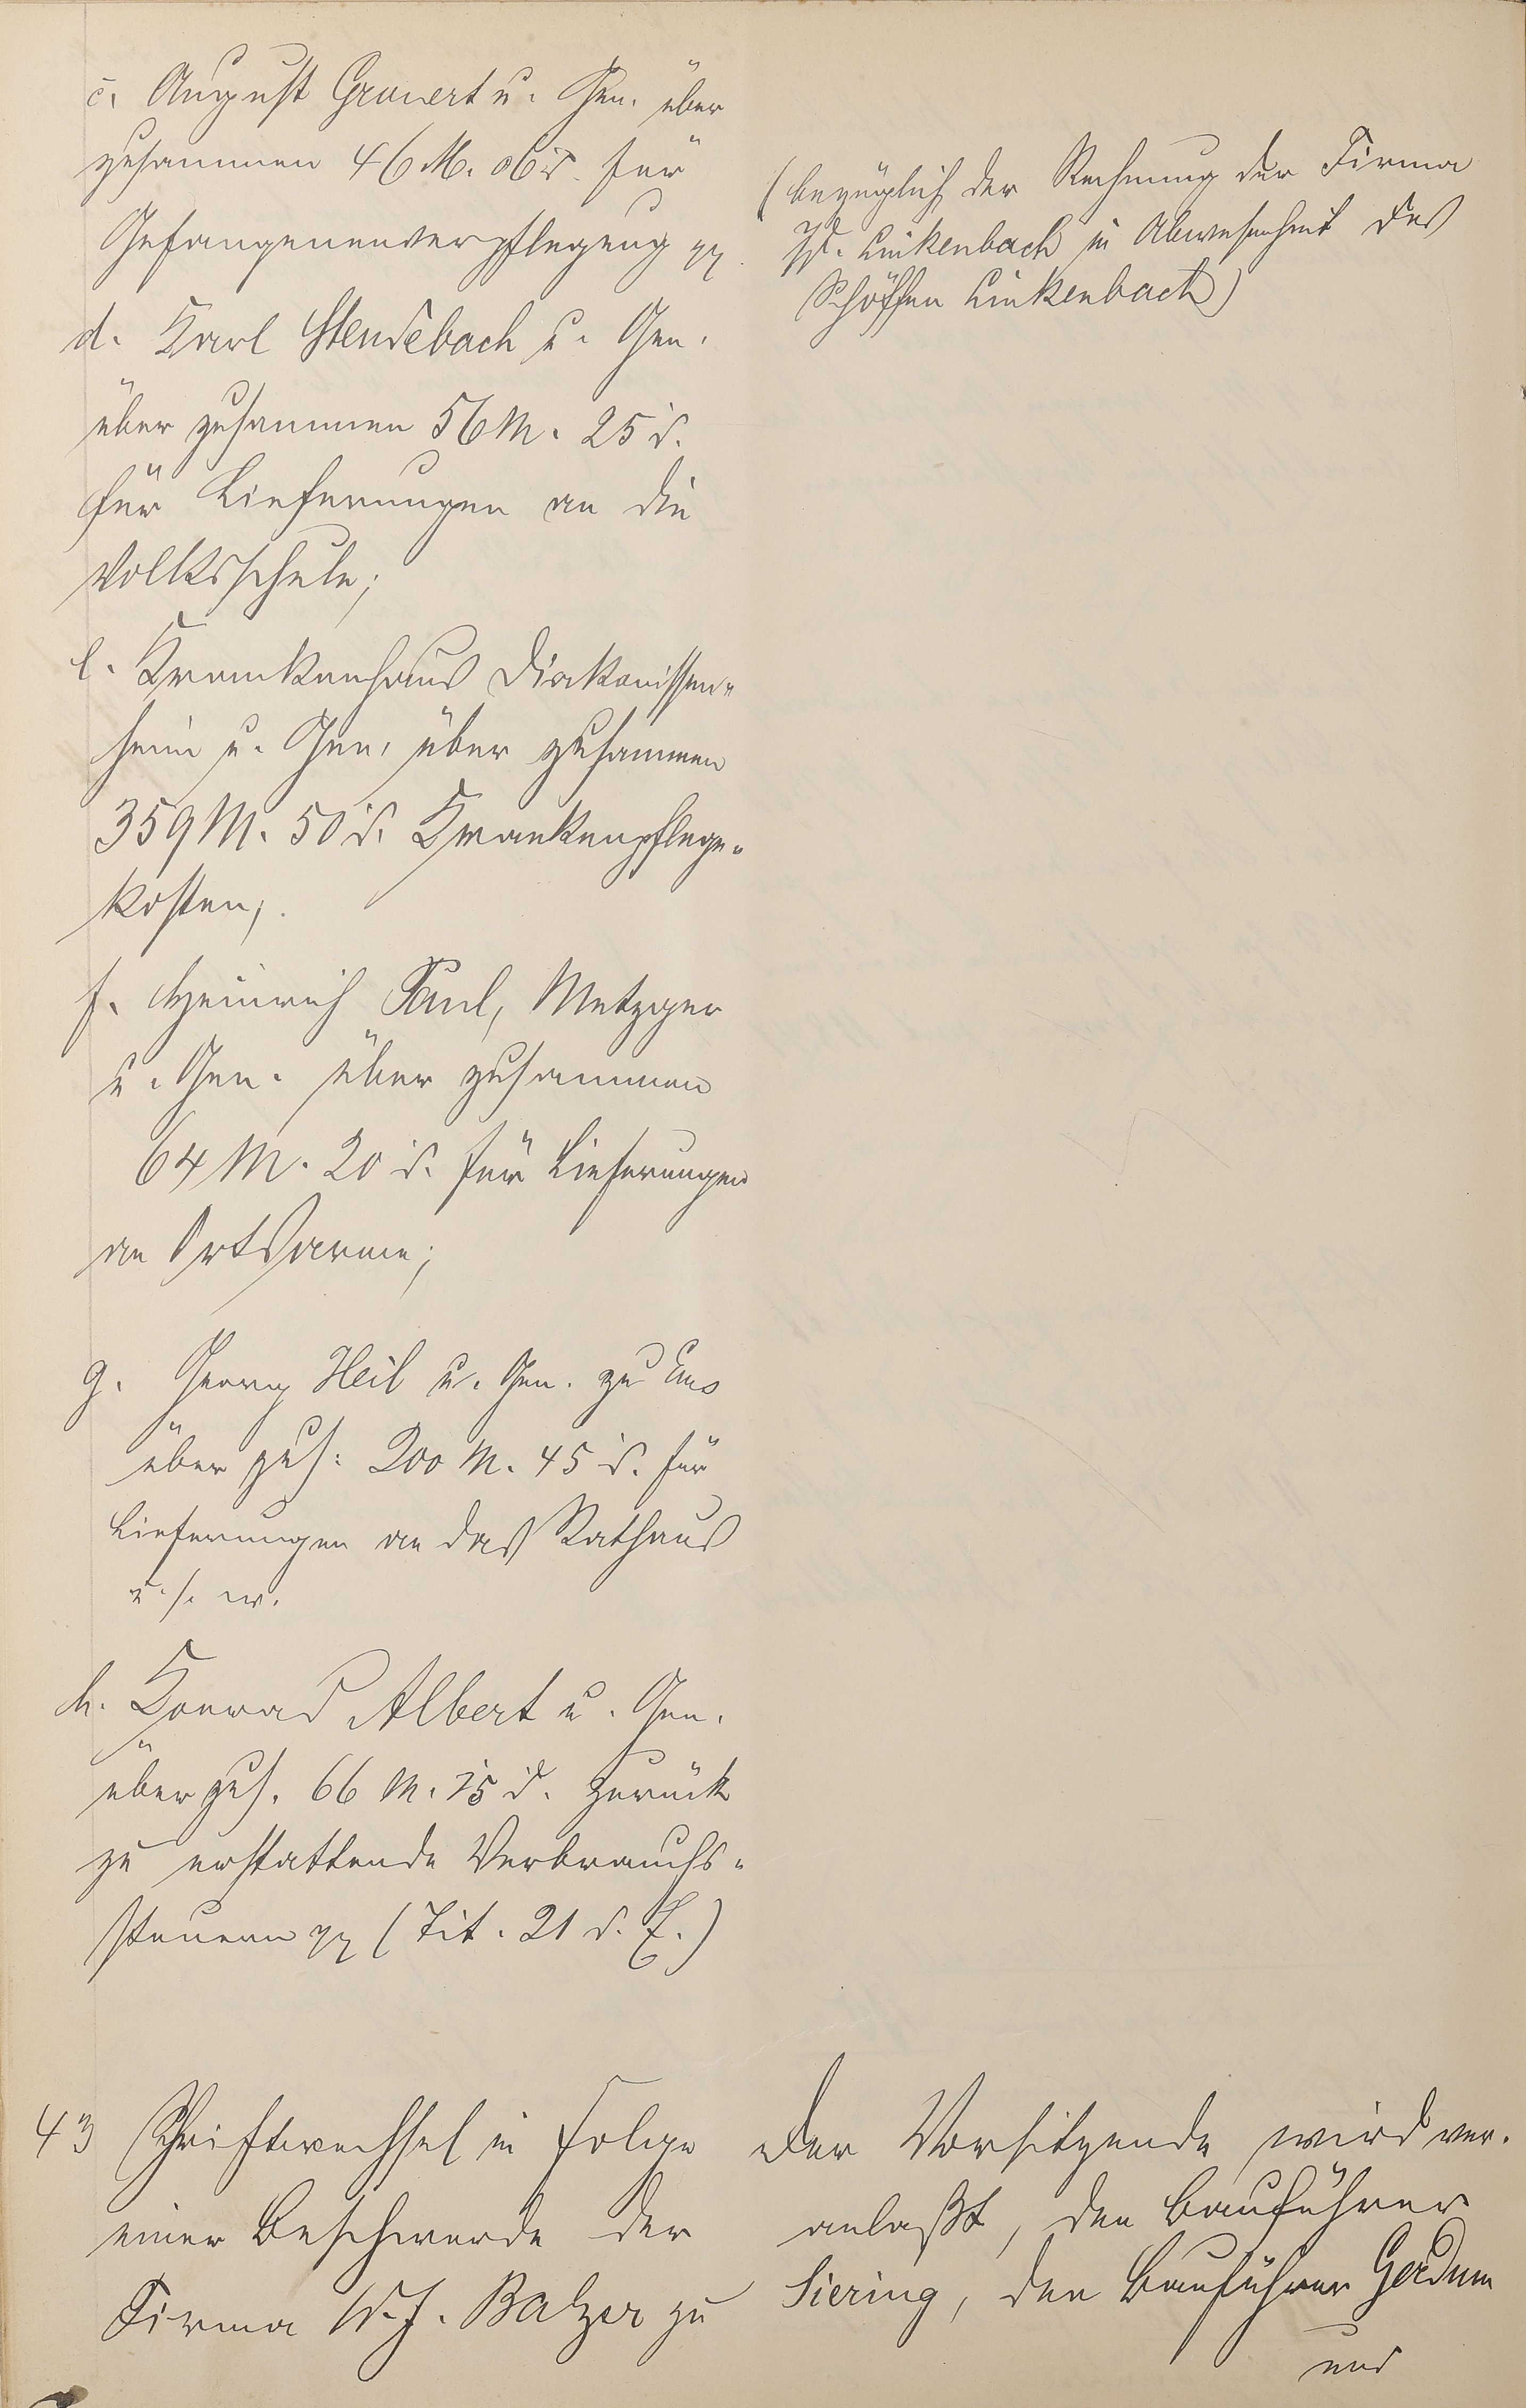 c. August Grauert u. Gen. über
zusammen 46 M. 06 d. für
Gefangenenverpflegung pp.
d. Karl Stendebach u. Gen.
über zusammen 56 M. 25 d.
für Lieferungen an die
Volksschule;
e. Krankenhaus Diakonissen-
heim u. Gen. über zusammen
359 M. 50 d. Krankenpflege-
kosten;
f. Heinrich Paul, Metzger
u. Gen. über zusammen
64 M. 20 d. für Lieferungen
an Ortsarme;
g. Georg Heil u. Gen. zu Ems
über zus. 200 M. 45 d. für
Lieferungen an das Rathaus
u. s. w.
h. Konrad Albert u. Gen.
über zus. 66 M. 75 d. zurück
zu erstattende Verbrauchs-
steuern pp (Tit. 21 d. E.)
(bezüglich der Rechnung der Firma
Linkenbach in Abwesenheit des
Schöffen Linkenbach)
43 Schriftwechsel in Folge
einer Beschwerde der
Firma W. J. Balzer zu
Der Vorsitzende wird ver-
anlaßt, den Bauführer
Siering, den Bauführer Gerdum
und